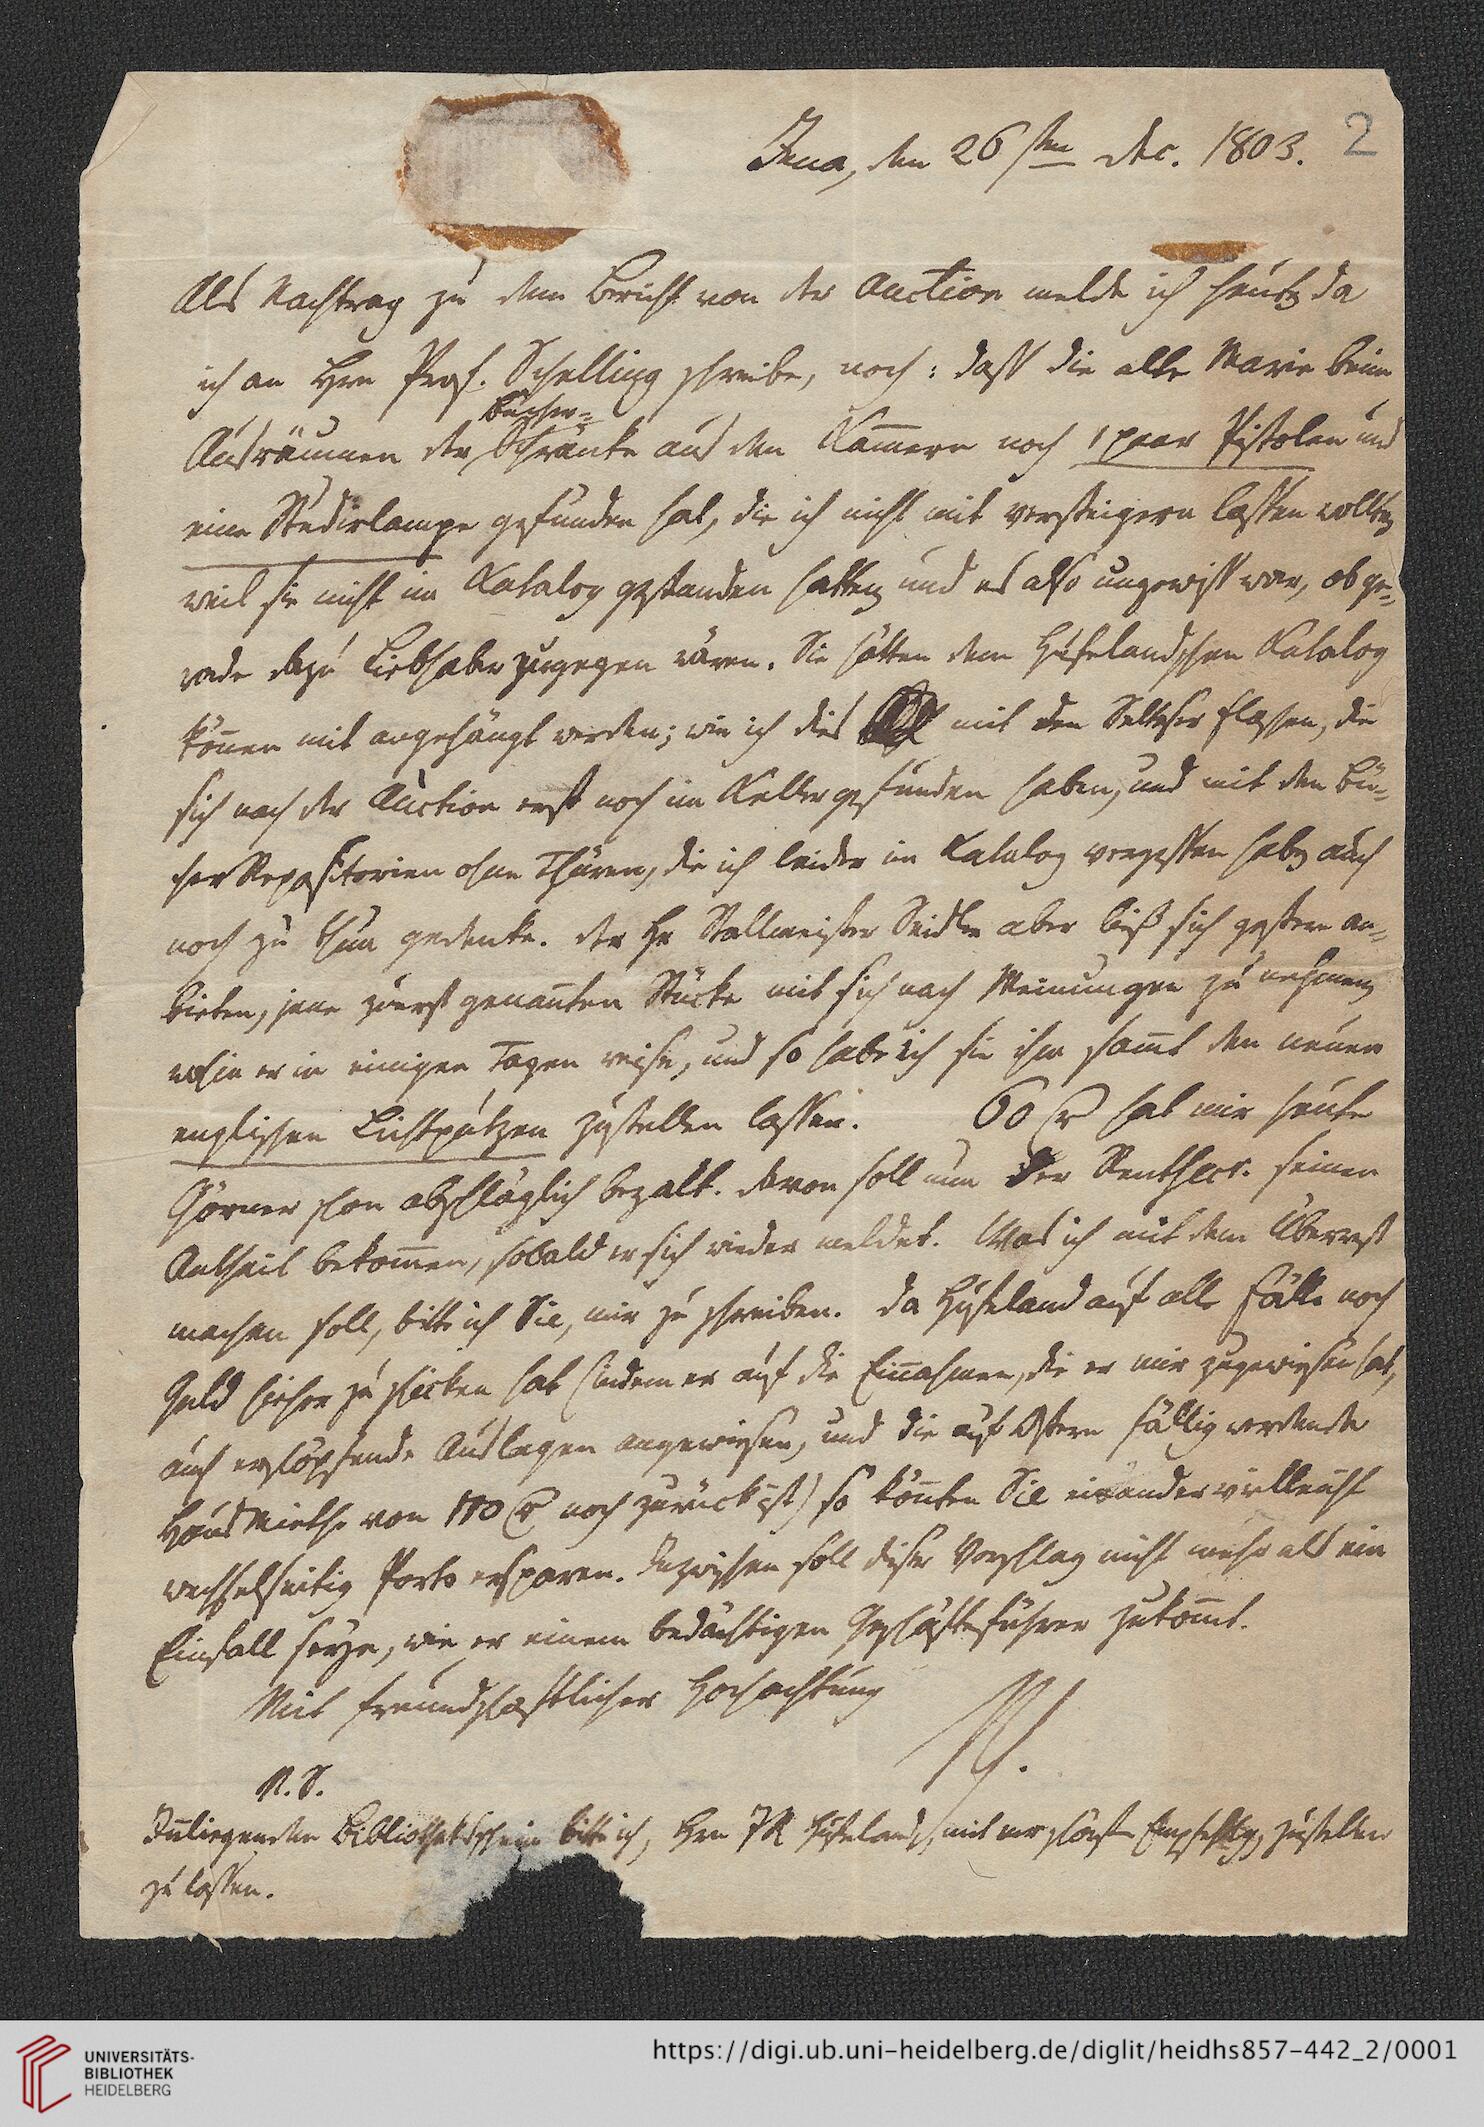 Jena, den 26sten Dec. 1803.
2
Als Nachtrag zu dem Bericht von der Auction melde ich heute, da
ich an Hrn Prof. Schelling schreibe, noch: dass die alte Marie beim
Bücher-
Ausräumen der Schränke aus den Kam̄ern noch 1 paar Pistolen und
eine Studirlampe gefunden hat, die ich nicht mit versteigern lassen wollte,
weil sie nicht im Katalog gestanden hatten, und es also ungewiss war, ob ge-
rade dazu Liebhaber zugegen wären. Sie hätten dem Hufelandschen Katalog
kön̄en mit angehängt werden; wie ich dies mit den Selteser Flaschen, die
sich nach der Auction erst noch im Keller gefunden haben, und mit den Bü-
cher Repositorien ohne Thüren, die ich leider im Katalog vergessen habe, auch
noch zu thun gedenke. Der Hr Stallmeister Seidler aber ließ sich gestern an-
bieten, jene zuerst genan̄ten Stücke mit sich nach Meinungen zu nehmen,
wohin er in einigen Tagen reise, und so habe ich sie ihm sam̄t den neuen
englischen Lichtputzen zustellen lassen. 60 r hat mir heute
Görner schon abschläglich bezalt. Davon soll nun der Rentsecr. seinen
Antheil bekom̄en, sobald er sich wieder meldet. Was ich mit dem Überrest
machen soll, bitte ich Sie, mir zu schreiben. Da Hufeland auf alle Fälle noch
Geld hieher zu schicken hat (indem er auf die Ein̄ahmen, die er mir zugewiesen hat,
auch erschöpfende Auslagen angewiesen, und die auf Ostern fällig werdende
Haus Miethe von 110 r noch zurück ist) so kön̄ten Sie einander vielleicht
wechselseitig Porto ersparen. Inzwischen soll dieser Vorschlag nicht mehr als ein
Einfall seyn, wie er einem bedächtigen Geschäftsführer zukom̄t.
Mit freundschaftlicher Hochachtung
N. S.
In̄liegenden Bibliothekschein bitte ich, Hrn JR Hufeland, mit Empfehlg, zustellen
zu lassen.
UNIVERSITÄTS-
BIBLIOTHEK
HEIDELBERG
https://digi.ub.uni-heidelberg.de/diglit/heidhs857-442_2/0001